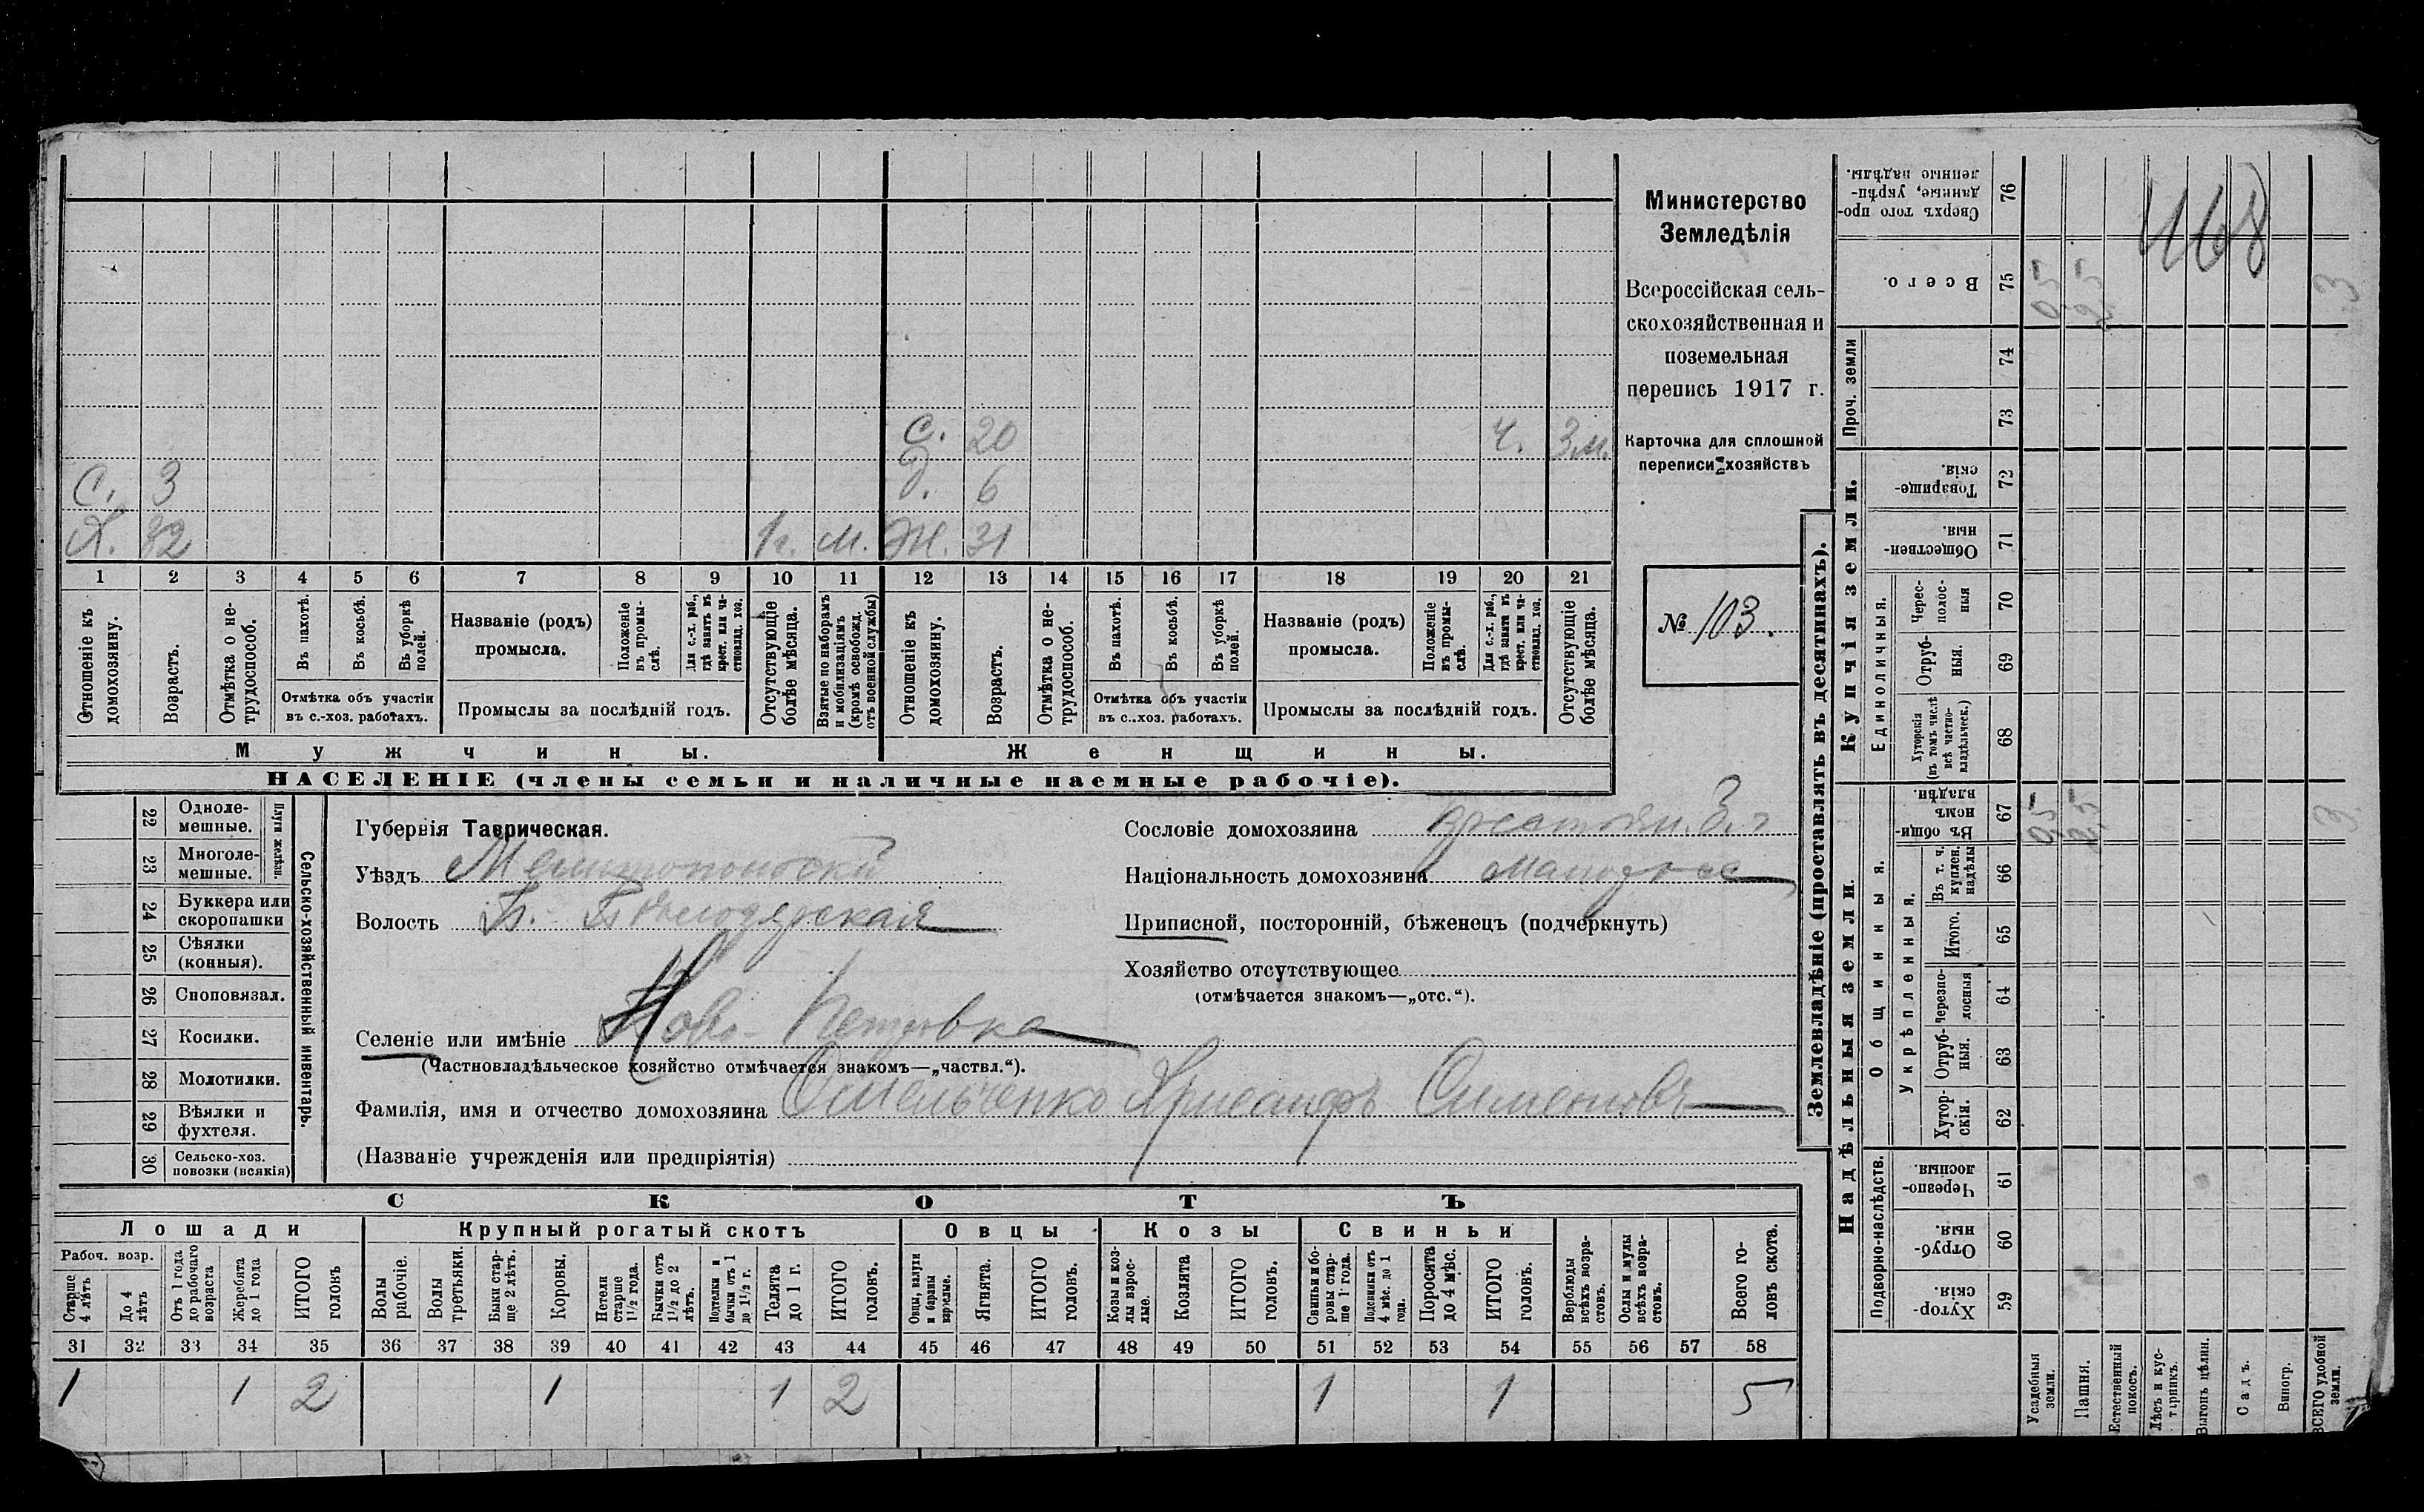 Министерство
Земледѣлія
Всероссійская сель-
скохозяйственная и
поземельная
перепись 1917 г.
Карточка для сплошной
переписи хозяйствъ
№ 103.
468
С. 20 Ч. 3 м.
С. 3 Д. 6
Х. 32 1 г. М. Ж. 31
1 2 3 4 5 6 7 8 9 10 11 12 13 14 15 16 17 18 19 20 21
Отношеніе къ домохозяину.
Возрастъ.
Отмѣтка о не-трудоспособ.
Въ пахотѣ.
Въ косьбѣ.
Въ уборкѣ полей.
Отмѣтка объ участіи
въ с.-хоз. работахъ.
Названіе (родъ)
промысла.
Положеніе въ промы-слѣ.
Для с.-х. раб., гдѣ занятъ въ крест. или ча-стновлад. хоз.
Промыслы за послѣдній годъ.
Отсутствующіе болѣе мѣсяца.
Взятые по наборамъ и мобилизаціямъ (кромѣ освобожд. отъ военной службы)
Отношеніе къ домохозяину.
Возрастъ.
Отмѣтка о не-трудоспособ.
Въ пахотѣ.
Въ косьбѣ.
Въ уборкѣ полей.
Отмѣтка объ участіи
въ с.-хоз. работахъ.
Названіе (родъ)
промысла.
Положеніе въ промы-слѣ.
Для с.-х. раб., гдѣ занята въ крест. или ча-стновлад. хоз.
Промыслы за послѣдній годъ.
Отсутствующіе болѣе мѣсяца.
Мужчины. Женщины.
НАСЕЛЕНІЕ (члены семьи и наличные наемные рабочіе).
Сельско-хозяйственный инвентарь.
Плуги желѣзн.
22 Одноле-мешные.
23 Многоле-мешные.
24 Буккера или скоропашки
25 Сѣялки (конныя).
26 Сноповязал.
27 Косилки.
28 Молотилки.
29 Вѣялки и фухтеля.
30 Сельско-хоз. повозки (всякія)
Губернія Таврическая.
Уѣздъ Мелитопольскій
Волость Б. Бѣлозерская
Селеніе или имѣніе Ново-Петровка
(Частновладѣльческое хозяйство отмѣчается знакомъ—„частвл.“).
Фамилія, имя и отчество домохозяина Омельченко Хрисанфъ Симоновъ
(Названіе учрежденія или предпріятія)
Сословіе домохозяина крестьян.
Національность домохозяина малоросс
Приписной, посторонній, бѣженецъ (подчеркнуть)
Хозяйство отсутствующее
(отмѣчается знакомъ—„отс.“).
СКОТЪ
Лошади Крупный рогатый скотъ Овцы Козы Свиньи
Рабоч. возр.
Старше 4 лѣтъ
До 4 лѣтъ
Отъ 1 года до рабочаго возраста
Жеребята до 1 года
ИТОГО головъ
Волы рабочіе.
Волы третьяки.
Быки стар-ше 2 лѣтъ.
Коровы.
Нетели старше 1 1/2 года.
Бычки отъ 1 1/2 до 2 лѣтъ.
Подтелки и бычки отъ 1 до 1 1/2 г.
Телята до 1 г.
ИТОГО головъ.
Овцы, валухи и бараны взрослые.
Ягнята.
ИТОГО головъ.
Козы и коз-лы взрос-лые.
Козлята
ИТОГО головъ.
Свиньи и бо-ровы стар-ше 1 года.
Подсвинки отъ 4 мѣс. до 1 года.
Поросята до 4 мѣс.
ИТОГО головъ.
Верблюды всѣхъ возра-стовъ.
Ослы и мулы всѣхъ возра-стовъ.
Всего го-ловъ скота.
31 32 33 34 35 36 37 38 39 40 41 42 43 44 45 46 47 48 49 50 51 52 53 54 55 56 57 58
1 1 2 1 1 2 1 1 5
Землевладѣніе (проставлять въ десятинахъ).
Сверхъ того про-данные, укрѣп-ленные надѣлы. 76
Всего. 75 0,5 2,5 3
Проч. земли 74 73
Купчія земли.
Товарище-скія. 72
Обществен-ныя. 71
Единоличныя.
Черес-полос-ныя 70
Отруб-ныя. 69
Хуторскія (въ томъ числѣ всѣ частно-владѣльческ.) 68
Надѣльныя земли.
Общинныя.
Въ общи-номъ владѣн. 67 0,5 2,5 3
Укрѣпленныя.
Въ т. ч. куплен. надѣлы 66
Итого. 65
Черезпо-лосныя 64
Отруб-ныя. 63
Хутор-скія. 62
Подворно-наслѣдств.
Черезпо-лосныя. 61
Отруб-ныя. 60
Хутор-скія. 59
Усадебныя земли.
Пашня.
Естественный покосъ.
Лѣсъ и кус-тарникъ.
Выгонъ цѣлин.
Садъ.
Виногр.
ВСЕГО удобной земли.